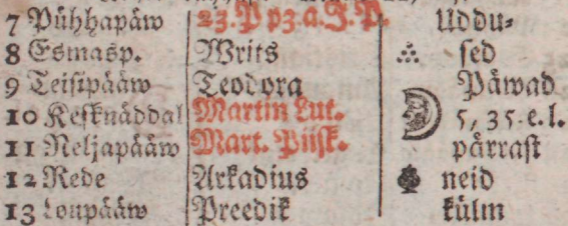 7 Pühhapääw 23. P pz. a. J. P. Uddu-
8 Esmasp. Writs sed
9 Teisipääw Teodora Päwad
10 Kesknäddal Martin Lut. 5, 35. e. l.
11 Neljapääw Mart. Piisk. pärrast
12 Rede Arkadius neid
13 Loupääw Preedik külm